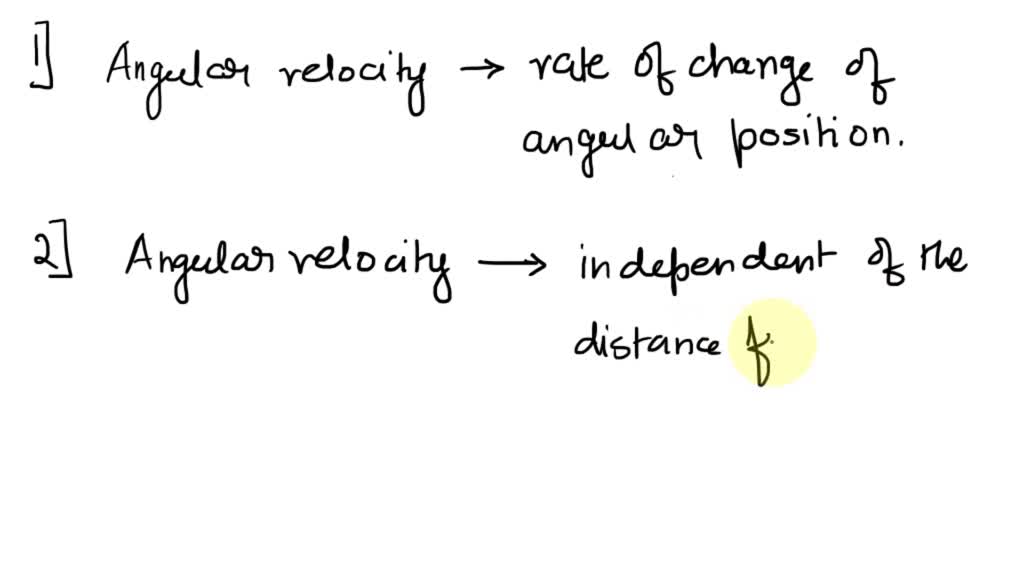 1] Angular velocity → rate of change of
angular position.
2] Angular velocity → independent of the
distance f